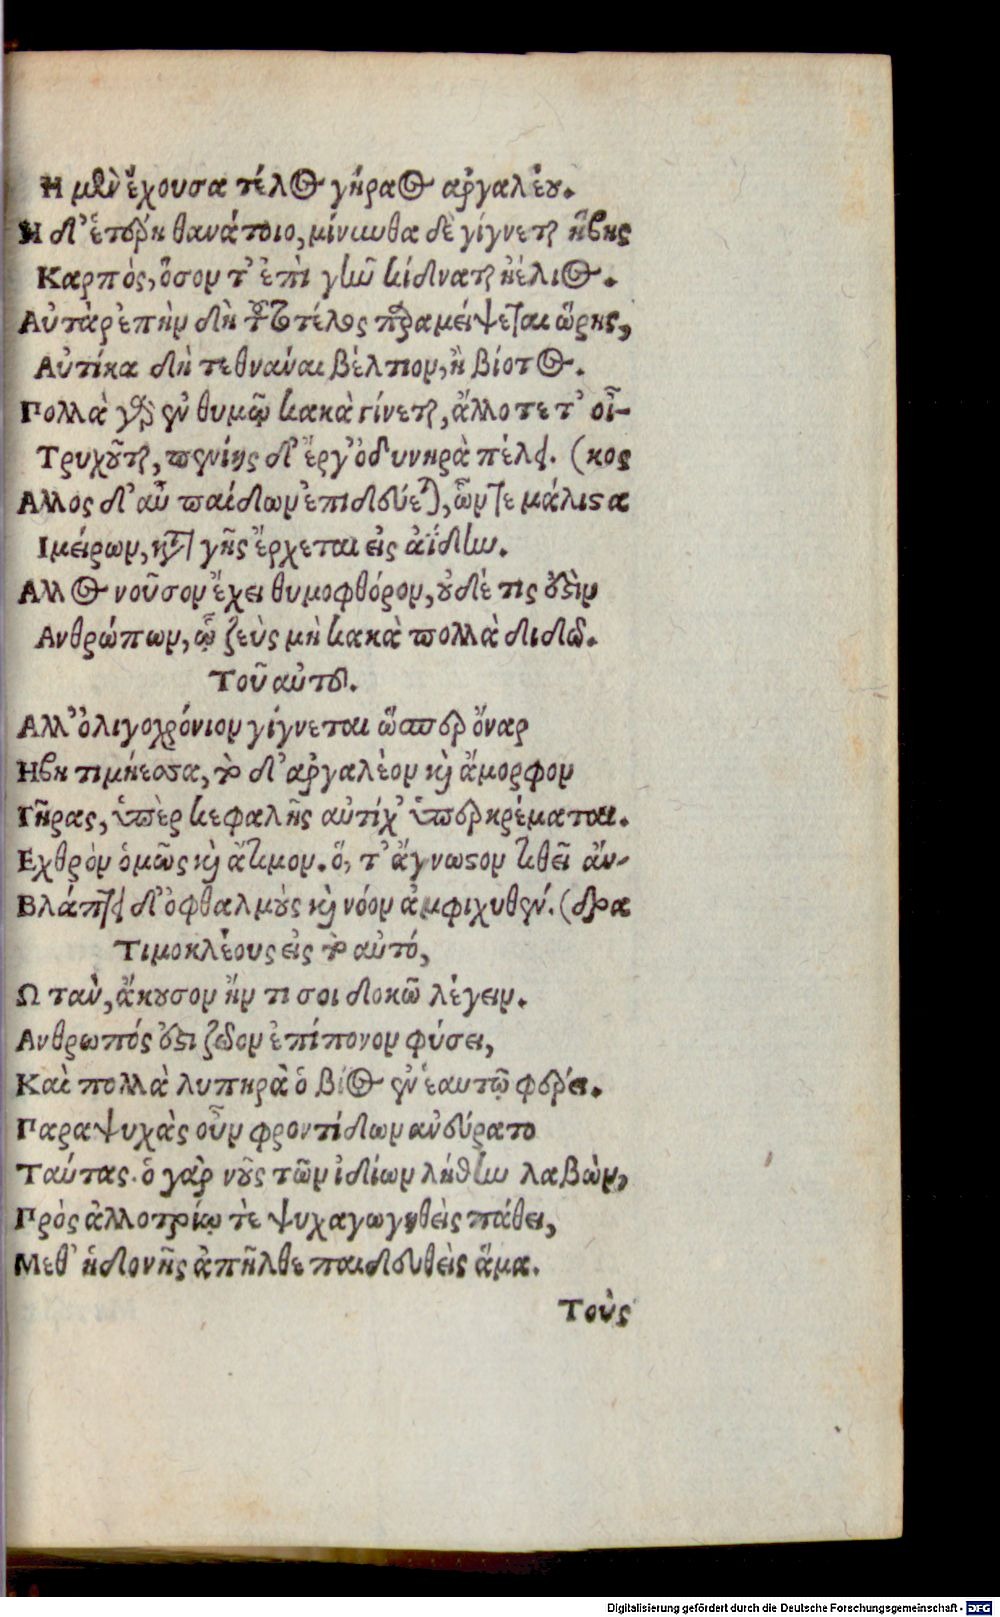 Η μὲν ἔχουσα τέλος γήραος ἀργαλέου.
Η δ' ἑτέρη θανάτοιο, μίνυνθα δὲ γίγνεται ἥβης
Καρπὸς, ὅσον τ' ἐπὶ γῆν κίδναται ἠέλιος.
Αὐτὰρ ἐπὴν δὴ τοῦτο τέλος παραμείψεται ὥρης,
Αὐτίκα δὴ τεθνάναι βέλτιον, ἢ βίοτος.
Πολλὰ γὰρ ἐν θυμῷ κακὰ γίνεται, ἄλλοτε τ' οἶ-
Τρυχοῦται, πενίης δ' ἔργ' ὀδυνηρὰ πέλει. (κος
Αλλος δ' αὖ παίδων ἐπιδεύεται, ὧν τε μάλιστα
Ιμείρων, κατὰ γῆς ἔρχεται εἰς ἀΐδην.
Αλλος νοῦσον ἔχει θυμοφθόρον, οὐδέ τις ἐστὶν
Ανθρώπων, ᾧ ζεὺς μὴ κακὰ πολλὰ διδῷ.
Τοῦ αὐτοῦ.
Αλλ' ὀλιγοχρόνιον γίγνεται ὥσπερ ὄναρ
Ηβη τιμήεσσα, τὸ δ' ἀργαλέον καὶ ἄμορφον
Γῆρας, ὑπὲρ κεφαλῆς αὐτίχ' ὑπερκρέμαται.
Εχθρὸν ὁμῶς καὶ ἄτιμον. ὅ, τ' ἄγνωστον τιθεῖ ἄν-
Βλάπτει δ' ὀφθαλμοὺς καὶ νόον ἀμφιχυθέν. (δρα
Τιμοκλέους εἰς τὸ αὐτό,
Ω τὰν, ἄκουσον ἤν τι σοι δοκῶ λέγειν.
Ανθρωπός ἐστι ζῶον ἐπίπονον φύσει,
Καὶ πολλὰ λυπηρὰ ὁ βίος ἐν ἑαυτῷ φέρει.
Παραψυχὰς οὖν φροντίδων ἀνεύρατο
Ταύτας. ὁ γὰρ νοῦς τῶν ἰδίων λήθην λαβὼν,
Πρὸς ἀλλοτρίῳ τὲ ψυχαγωγηθεὶς πάθει,
Μεθ' ἡδονῆς ἀπῆλθε παιδευθεὶς ἅμα.
Τοὺς
Digitalisierung gefördert durch die Deutsche Forschungsgemeinschaft - DFG